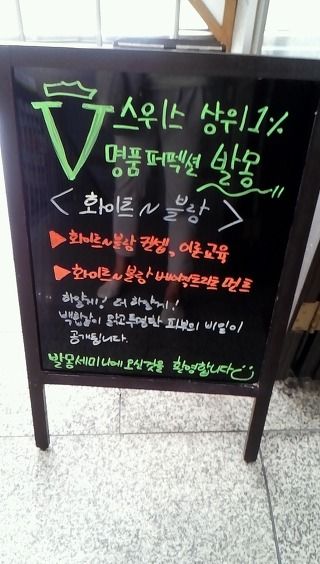 V 스위스 상위 1%
명품 퍼펙션 발몽
< 화이트~블랑 >
▶화이트~블랑 컨셉, 이론교육
▶화이트~블랑 트리트먼트
하얗게! 더 하얗게!
백합같이 맑고 투명한 피부의 비밀이
공개됩니다.
발몽세미나에 오신것을 환영합니다